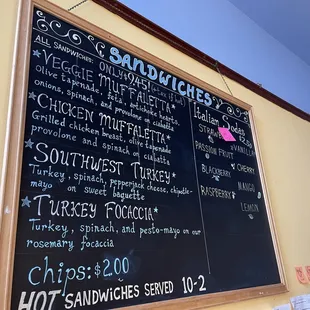 SANDWICHES
ALL SANDWICHES: ONLY $9.45!
VEGGIE MUFFALETTA*
Olive tapenade, feta, artichoke hearts,
onions, spinach, and provolone on ciabatta
CHICKEN MUFFALETTA*
Grilled chicken breast, olive tapenade
provolone and spinach on ciabatta
SOUTHWEST TURKEY*
Turkey, spinach, pepperjack cheese, chipotle-
mayo on sweet baguette
TURKEY FOCACCIA*
Turkey, spinach, and pesto-mayo on our
rosemary focaccia
chips: $2.00
HOT SANDWICHES SERVED 10-2
Italian Sodas
VANILLA
PASSION FRUIT
CHERRY
BLACKBERRY
MANGO
RASPBERRY
LEMON